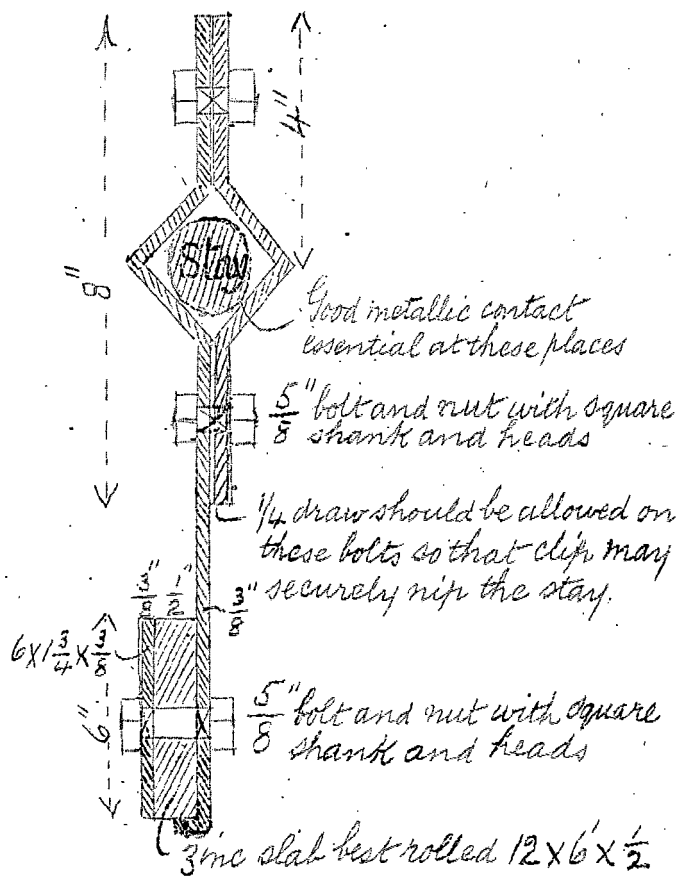 4"
8"
Stay
Good metallic contact
essential at these places
5/8" bolt and nut with square
shank and heads
1/4 draw should be allowed on
these bolts so that clip may
securely nip the stay.
3/8" 1/2" 3/8"
6 X 1 3/4 X 3/8
6"
5/8" bolt and nut with square
shank and heads
Zinc slab best rolled 12 X 6' X 1/2